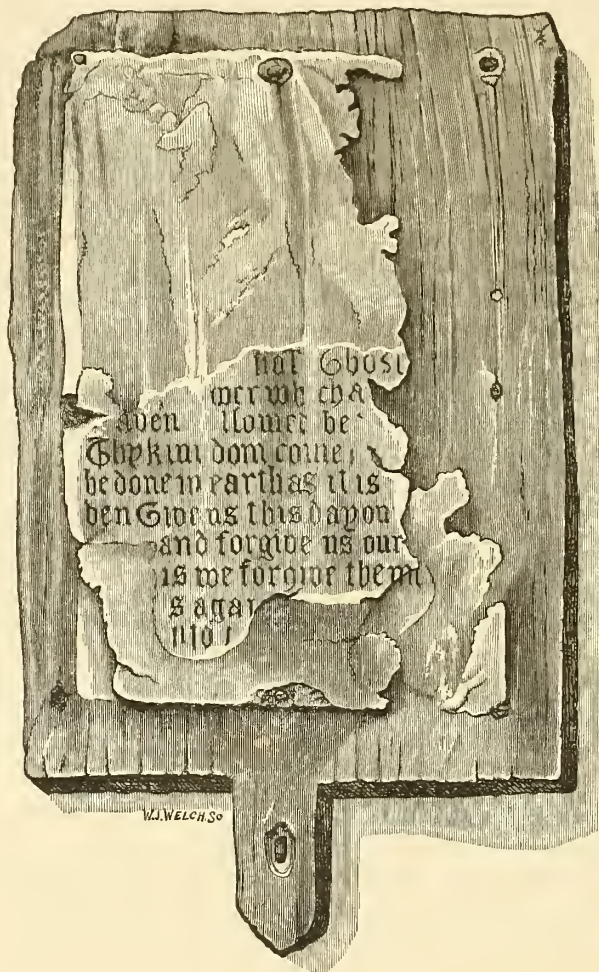 hol Ghost
wer wh cha
aven llowet be
Thy kin dom come,
be done in earth as it is
ven Give us this day ou
and forgive us our
as we forgive them
s agai
nto t
W.J.WELCH.SC